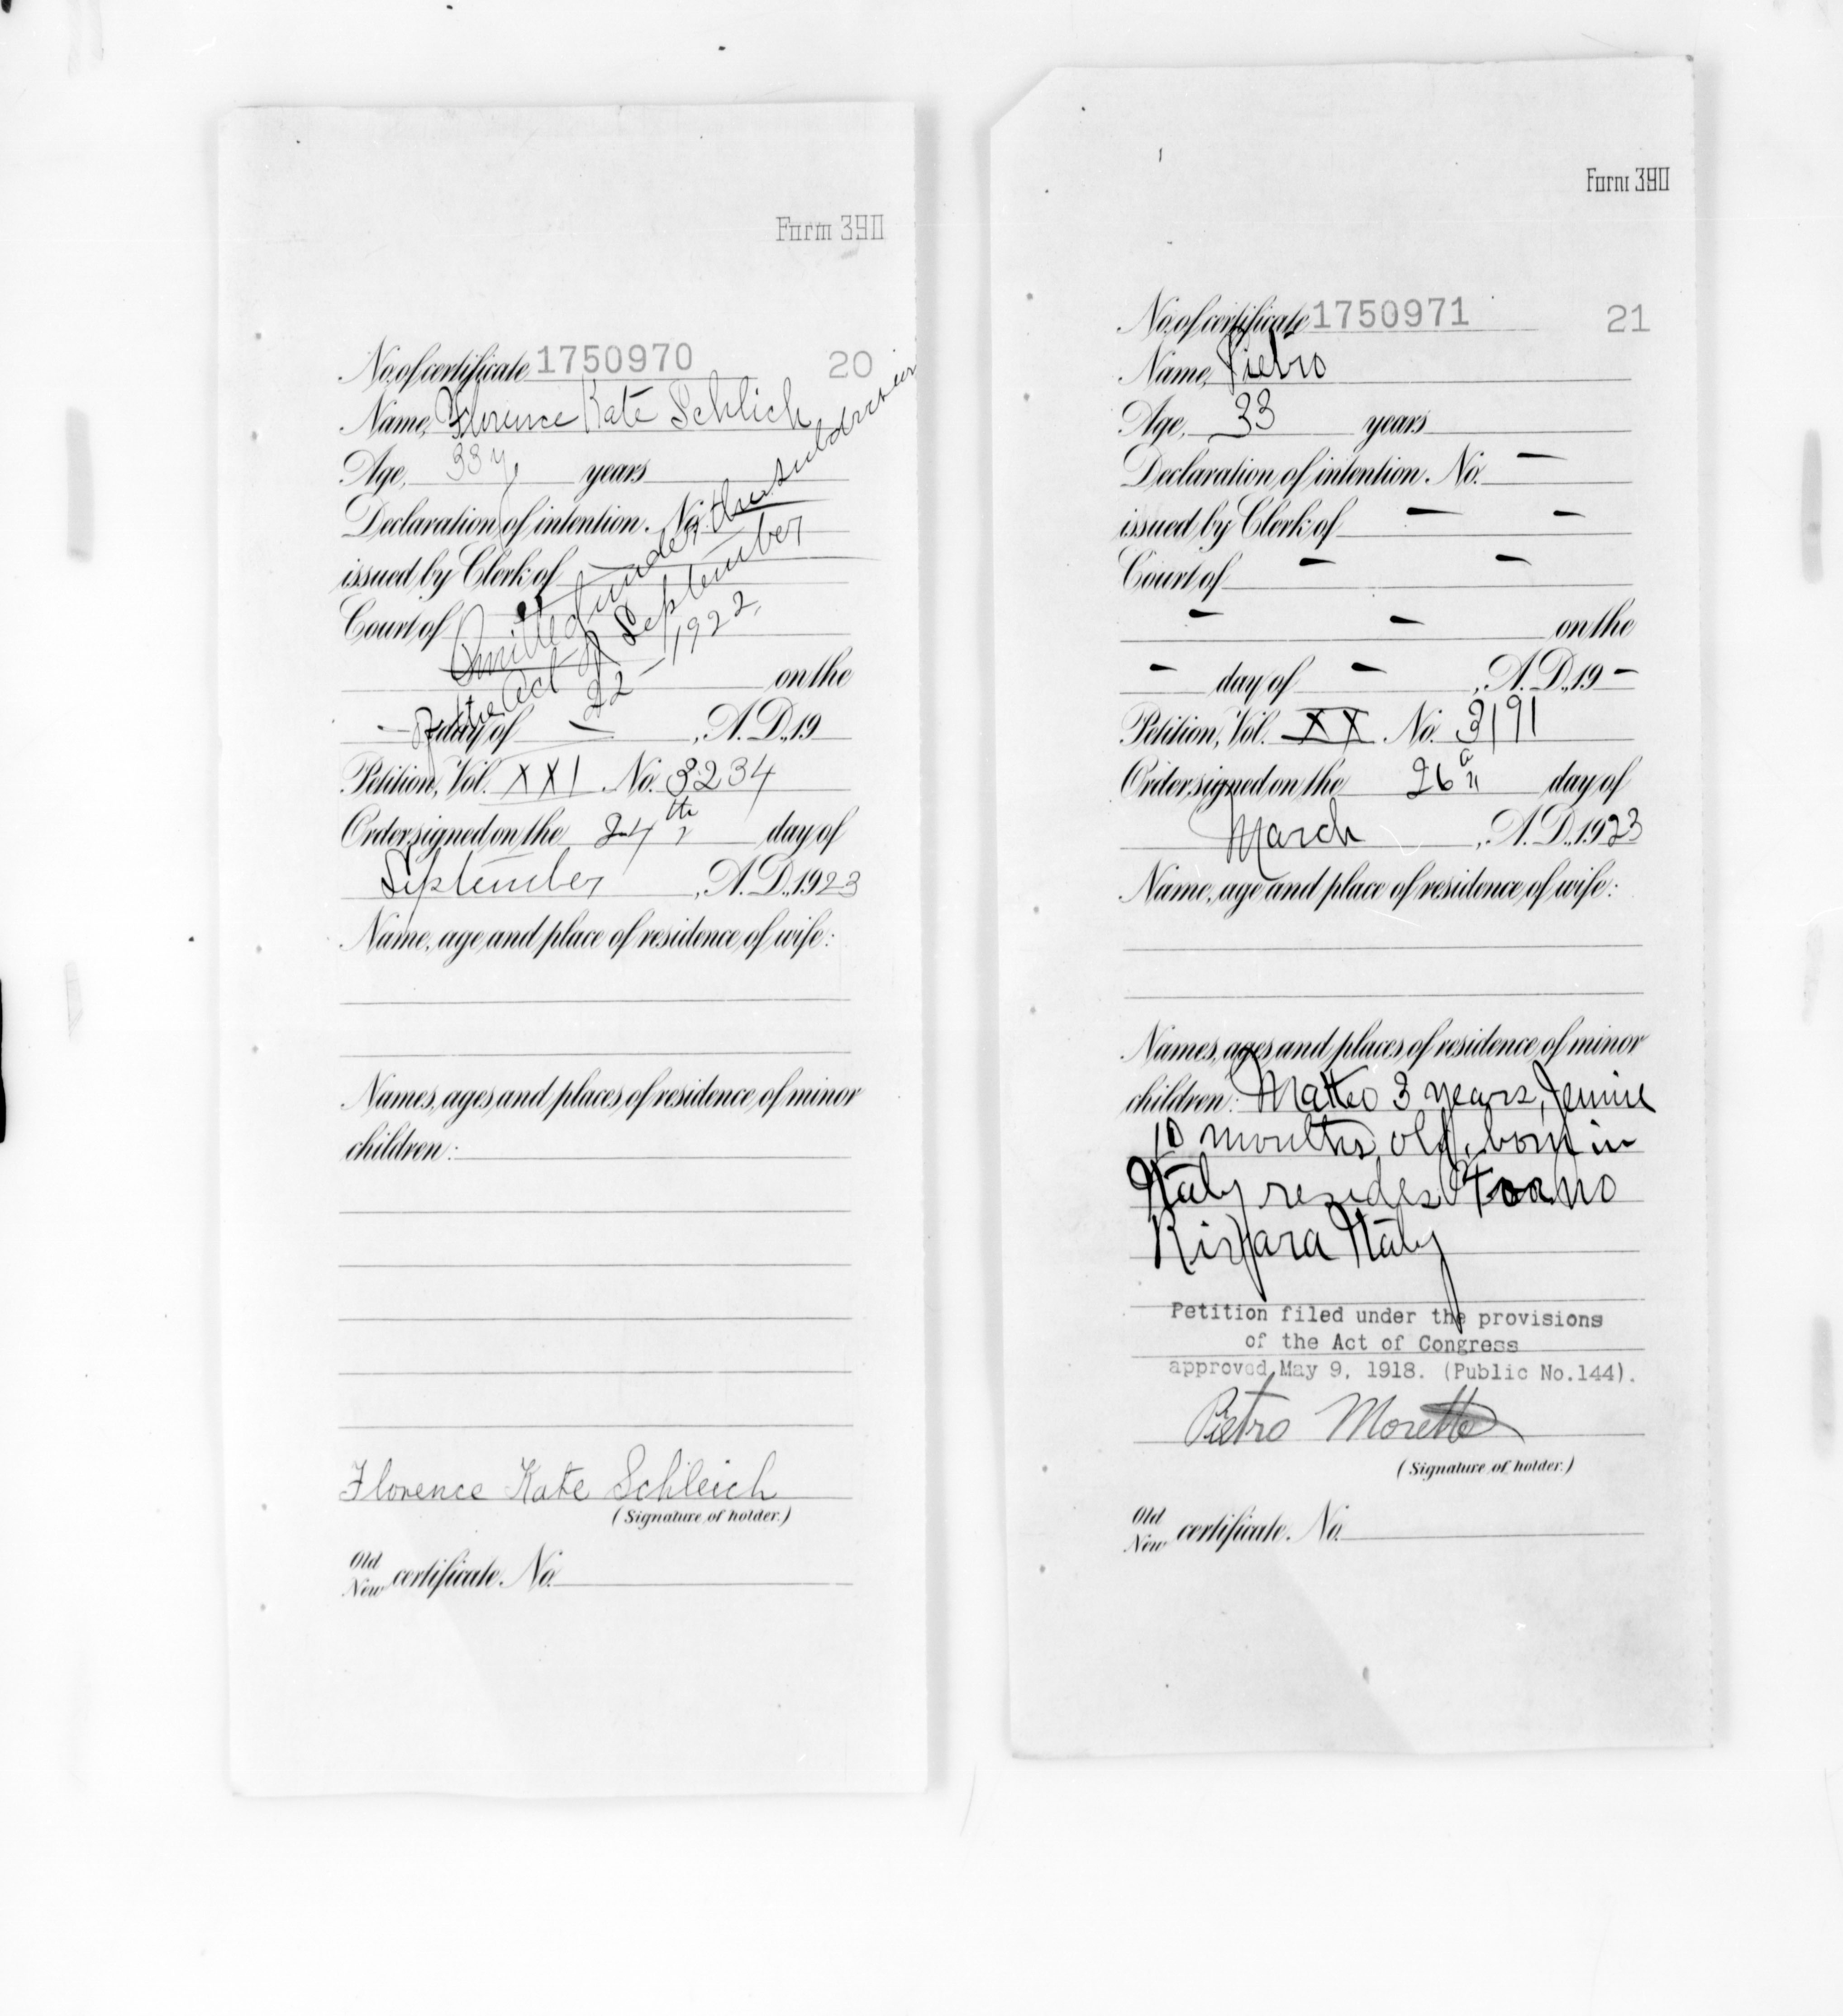 Form 390
No. of certificate 1750970 20
Name, Florence Kate Schlich
Age, 33 y, years
Declaration of intention. No.
issued by Clerk of
Court of
Omitted under the subdivision
of the Act of September
22 - 1922.
on the
- day of - , A. D., 19
Petition, Vol. XXI No. 3234
Order signed on the 24th day of
September , A. D., 1923
Name, age and place of residence of wife:
Names, ages and places of residence of minor
children:
Florence Kate Schleich
(Signature of holder.)
Old
New certificate. No.
Form 390
No. of certificate 1750971 21
Name, Pietro
Age, 33 years
Declaration of intention. No. -
issued by Clerk of - -
Court of - -
- - on the
- day of - , A. D., 19 -
Petition, Vol. XX No. 3191
Order signed on the 26 day of
March , A. D., 1923
Name, age and place of residence of wife:
Names, ages and places of residence of minor
children: Matteo 3 years, Jennie
10 months old, born in
Italy resides
Italy
Petition filed under the provisions
of the Act of Congress
approved May 9, 1918. (Public No.144).
Pietro Moretto
(Signature of holder.)
Old
New certificate. No.